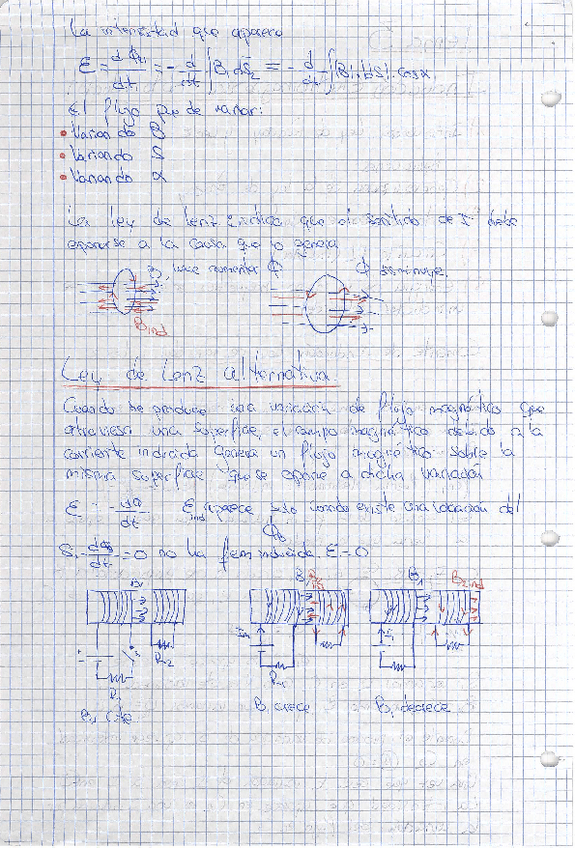 La intensidad que aparece
ε = dΦ/dt = - d/dt ∫B₁dS₂ = - d/dt ∫|B|·|dS|·cosα
El flujo puede variar:
• Variando B
• Variando S
• Variando α
La ley de Lenz indica que el sentido de I debe
oponerse a la causa que lo genera
aumenta Φ Φ disminuye.
B ind
Ley de Lenz alternativa.
Cuando se produce una variación de flujo magnético que
atraviesa una superficie, el campo magnético debido a la
corriente inducida genera un flujo magnético sobre la
misma superficie que se opone a dicha variación
ε = -dΦ/dt ε ind aparece solo cuando existe una variación del
Φ
Si dΦ/dt = 0 no ha fem inducida. ε = 0
B₁ B₁ B₁ B₂ind
R₂
R₁ R₁
B₁ cte B₁ crece B₁ decrece